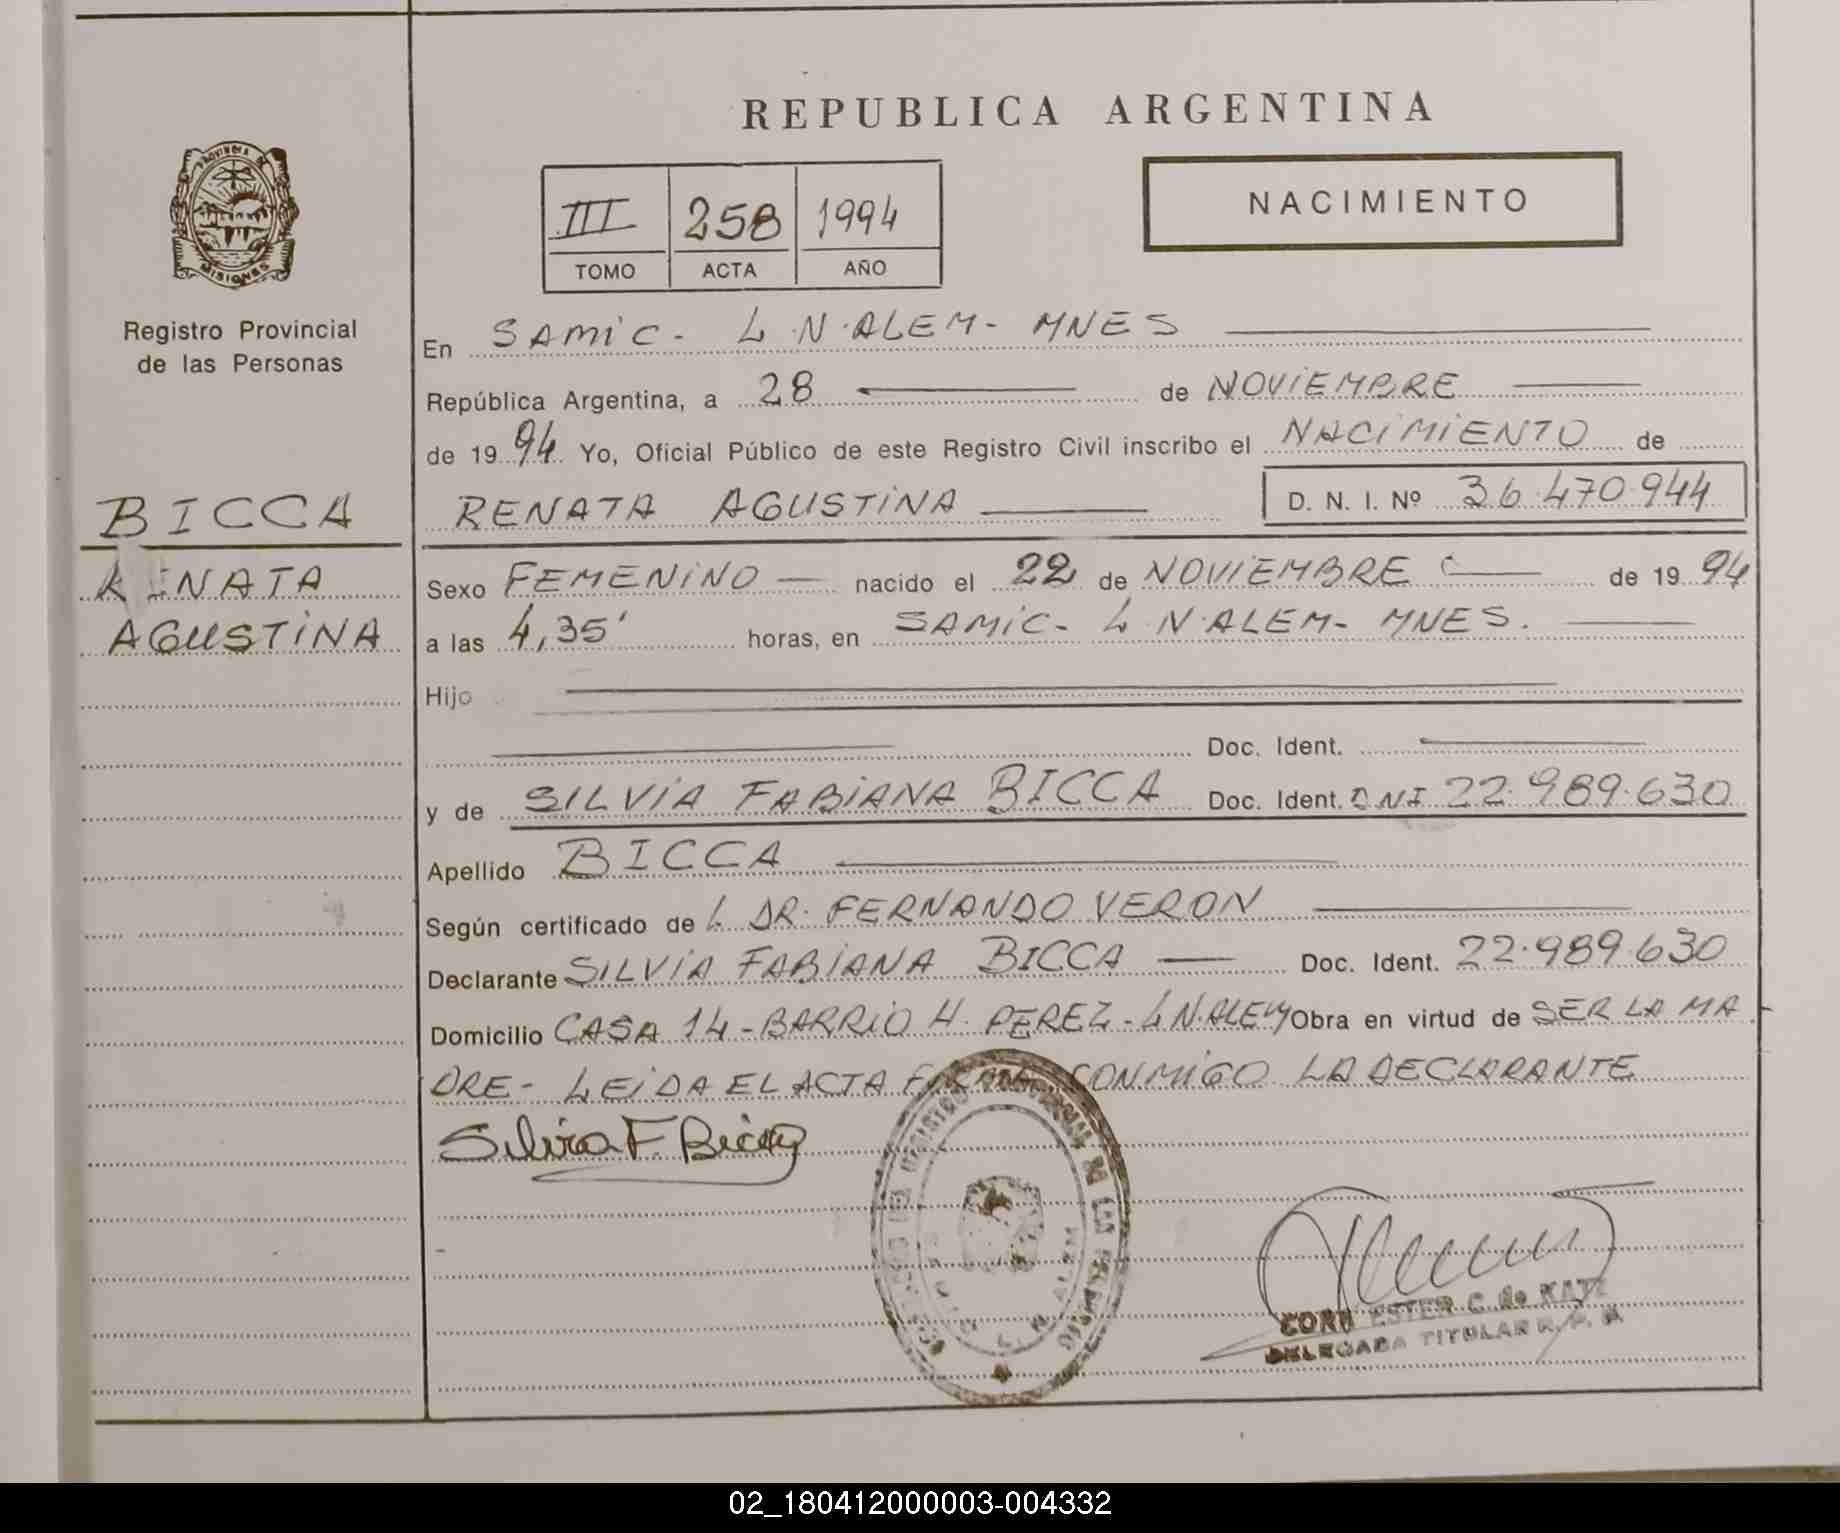 REPUBLICA ARGENTINA
PROVINCIA DE
MISIONES
Registro Provincial
de las Personas
III 258 1994
TOMO ACTA AÑO
NACIMIENTO
En SAMIC - L.N. ALEM - MNES
República Argentina, a 28 de NOVIEMBRE
de 1994 Yo, Oficial Público de este Registro Civil inscribo el NACIMIENTO de
BICCA
RENATA AGUSTINA D. N. I. Nº 36.470.944
RENATA
AGUSTINA
Sexo FEMENINO nacido el 22 de NOVIEMBRE de 1994
a las 4,35' horas, en SAMIC - L.N. ALEM - MNES.
Hijo
Doc. Ident.
y de SILVIA FABIANA BICCA Doc. Ident. DNI 22.989.630
Apellido BICCA
Según certificado de L DR. FERNANDO VERON
Declarante SILVIA FABIANA BICCA Doc. Ident. 22.989.630
Domicilio CASA 14 - BARRIO H. PEREZ - L.N. ALEM Obra en virtud de SER LA MA
DRE - LEIDA EL ACTA FIRMA CONMIGO LA DECLARANTE
Silvia F. Bicca
REGISTRO PROVINCIAL DE LAS PERSONAS
L. N. ALEM
ESTER C. de KATZ
DELEGADA TITULAR R. P. P.
02_180412000003-004332